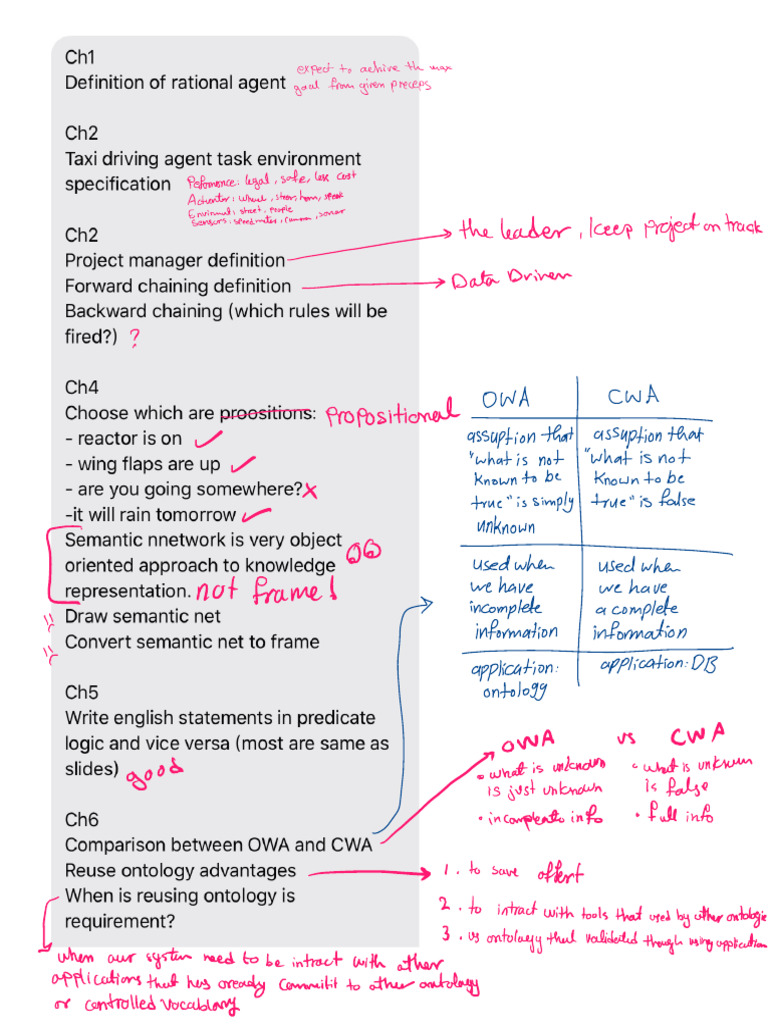 Ch1
Definition of rational agent
expect to achive th max
goal from given preceps
Ch2
Taxi driving agent task environment
specification
Peformence: legal, safe, less cost
Actuator: wheel, steer, horn, speak
Envirnmut: street, people
Sensors: speed meter, camera, sonar
Ch2
Project manager definition
the leader, keep project on track
Forward chaining definition
Data Driven
Backward chaining (which rules will be
fired?) ?
Ch4
Choose which are proositions: Propositional
- reactor is on ✓
- wing flaps are up ✓
- are you going somewhere? x
-it will rain tomorrow ✓
Semantic nnetwork is very object
oriented approach to knowledge OO
representation. not frame!
Draw semantic net
Convert semantic net to frame
Ch5
Write english statements in predicate
logic and vice versa (most are same as
slides) good
Ch6
Comparison between OWA and CWA
Reuse ontology advantages
When is reusing ontology is
requirement?
when our system need to be intract with other
applications that has aready commitit to other ontology
or controlled vocablary
OWA
CWA
assuption that
"what is not
known to be
true" is simply
unknown
assuption that
"what is not
known to be
true" is false
used when
we have
incomplete
information
used when
we have
a complete
information
application:
ontology
application: DB
OWA vs CWA
• what is unknown
is just unknown
• incompleate info
• what is unknown
is false
• full info
1. to save effert
2. to intract with tools that used by other ontologie
3. us ontology that validated though using application